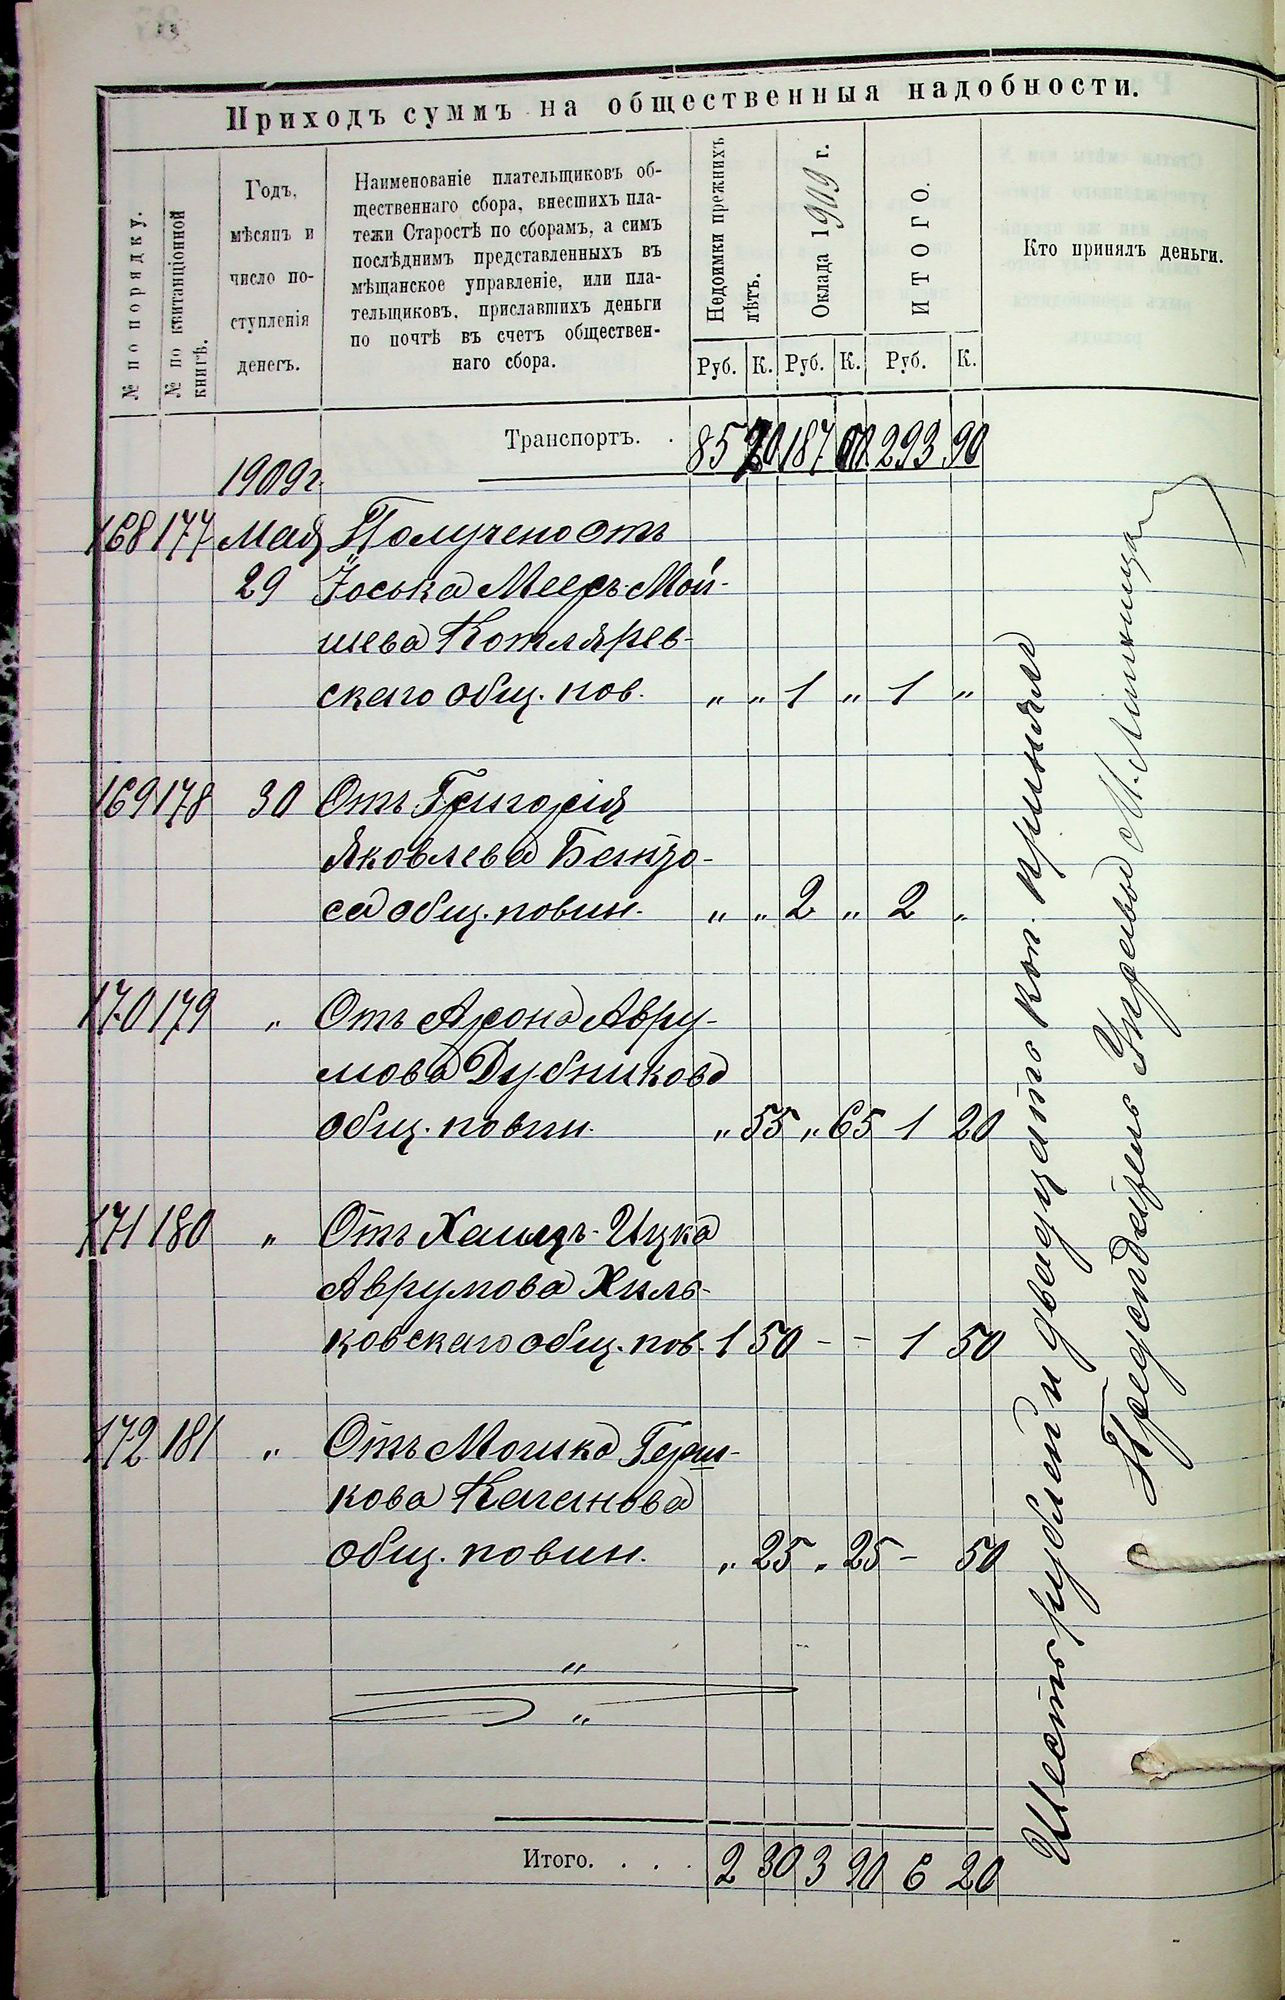 Приходъ суммъ на общественныя надобности.
№ по порядку.
№ по квитанціонной книгѣ.
Годъ,
мѣсяцъ и
число по-
ступленія
денегъ.
Наименованіе плательщиковъ об-
щественнаго сбора, внесшихъ пла-
тежи Старостѣ по сборамъ, а симъ
послѣднимъ представленныхъ въ
мѣщанское управленіе, или пла-
тельщиковъ, приславшихъ деньги
по почтѣ въ счетъ обществен-
наго сбора.
Недоимки прежнихъ лѣтъ.
Оклада 1909 г.
ИТОГО.
Кто принялъ деньги.
Руб. К. Руб. К. Руб. К.
Транспортъ. . 85 187 293 90
1909 г.
168 177 Мая Получено отъ
29 Іоська Мееръ-Мой-
шева Котлярев-
скаго общ. пов. „ „ 1 „ 1 „
169 178 30 Отъ Григорія
Яковлева
са общ. повин. „ „ 2 „ 2 „
170 179 „ Отъ Арона Авру-
мова Дубникова
общ. повин. „ 55 „ 65 1 20
171 180 „ Отъ Хаимъ-Ицка
Аврумова Хиль-
ковскаго общ. пов. 1 50 - - 1 50
172 181 „ Отъ Мошка Герш-
кова Каганова
общ. повин. „ 25 „ 25 - 50
„
„
Итого. . . . 2 30 3 90 6 20
Шесть рублей и двадцать коп. принялъ
Предсѣдатель Управы